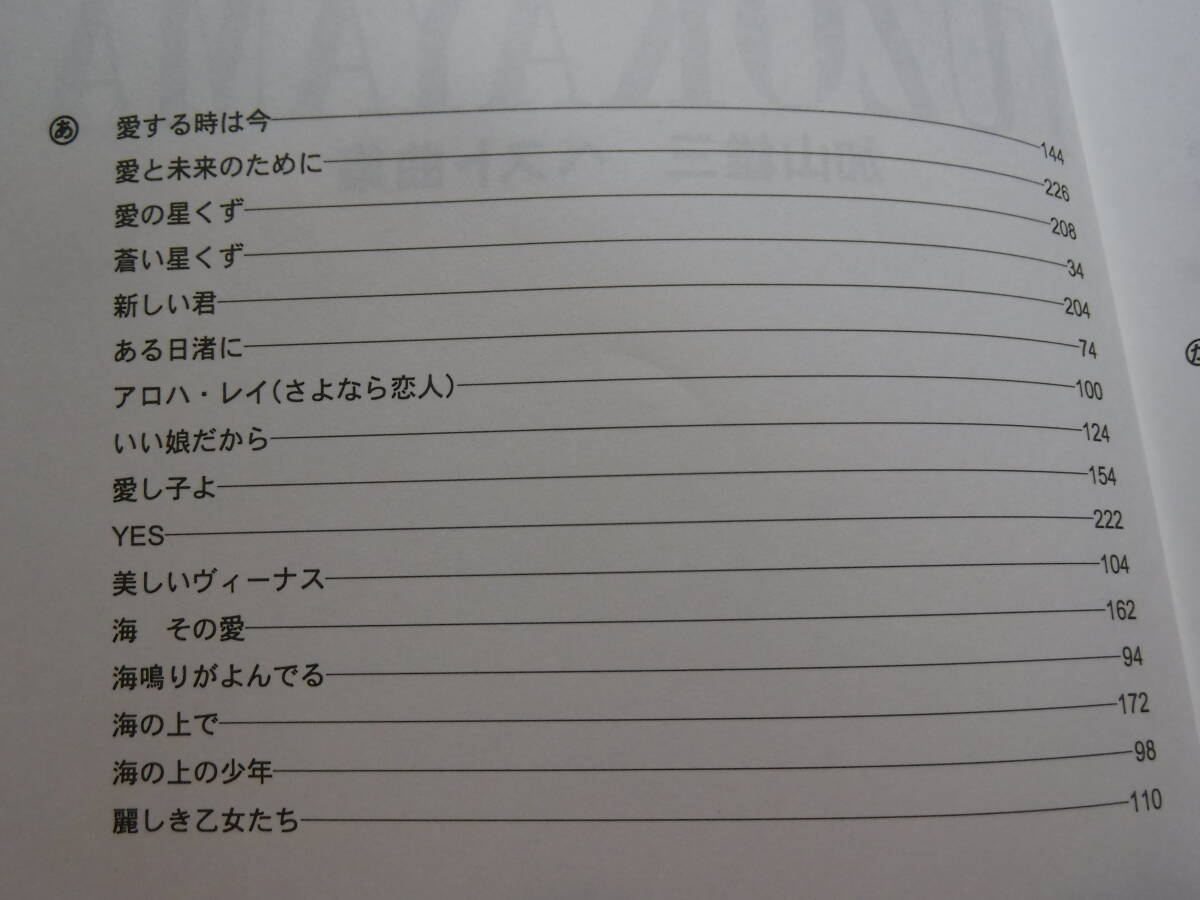 あ 愛する時は今 144
愛と未来のために 226
愛の星くず 208
蒼い星くず 34
新しい君 204
ある日渚に 74
アロハ・レイ(さよなら恋人) 100
いい娘だから 124
愛し子よ 154
YES 222
美しいヴィーナス 104
海　その愛 162
海鳴りがよんでる 94
海の上で 172
海の上の少年 98
麗しき乙女たち 110